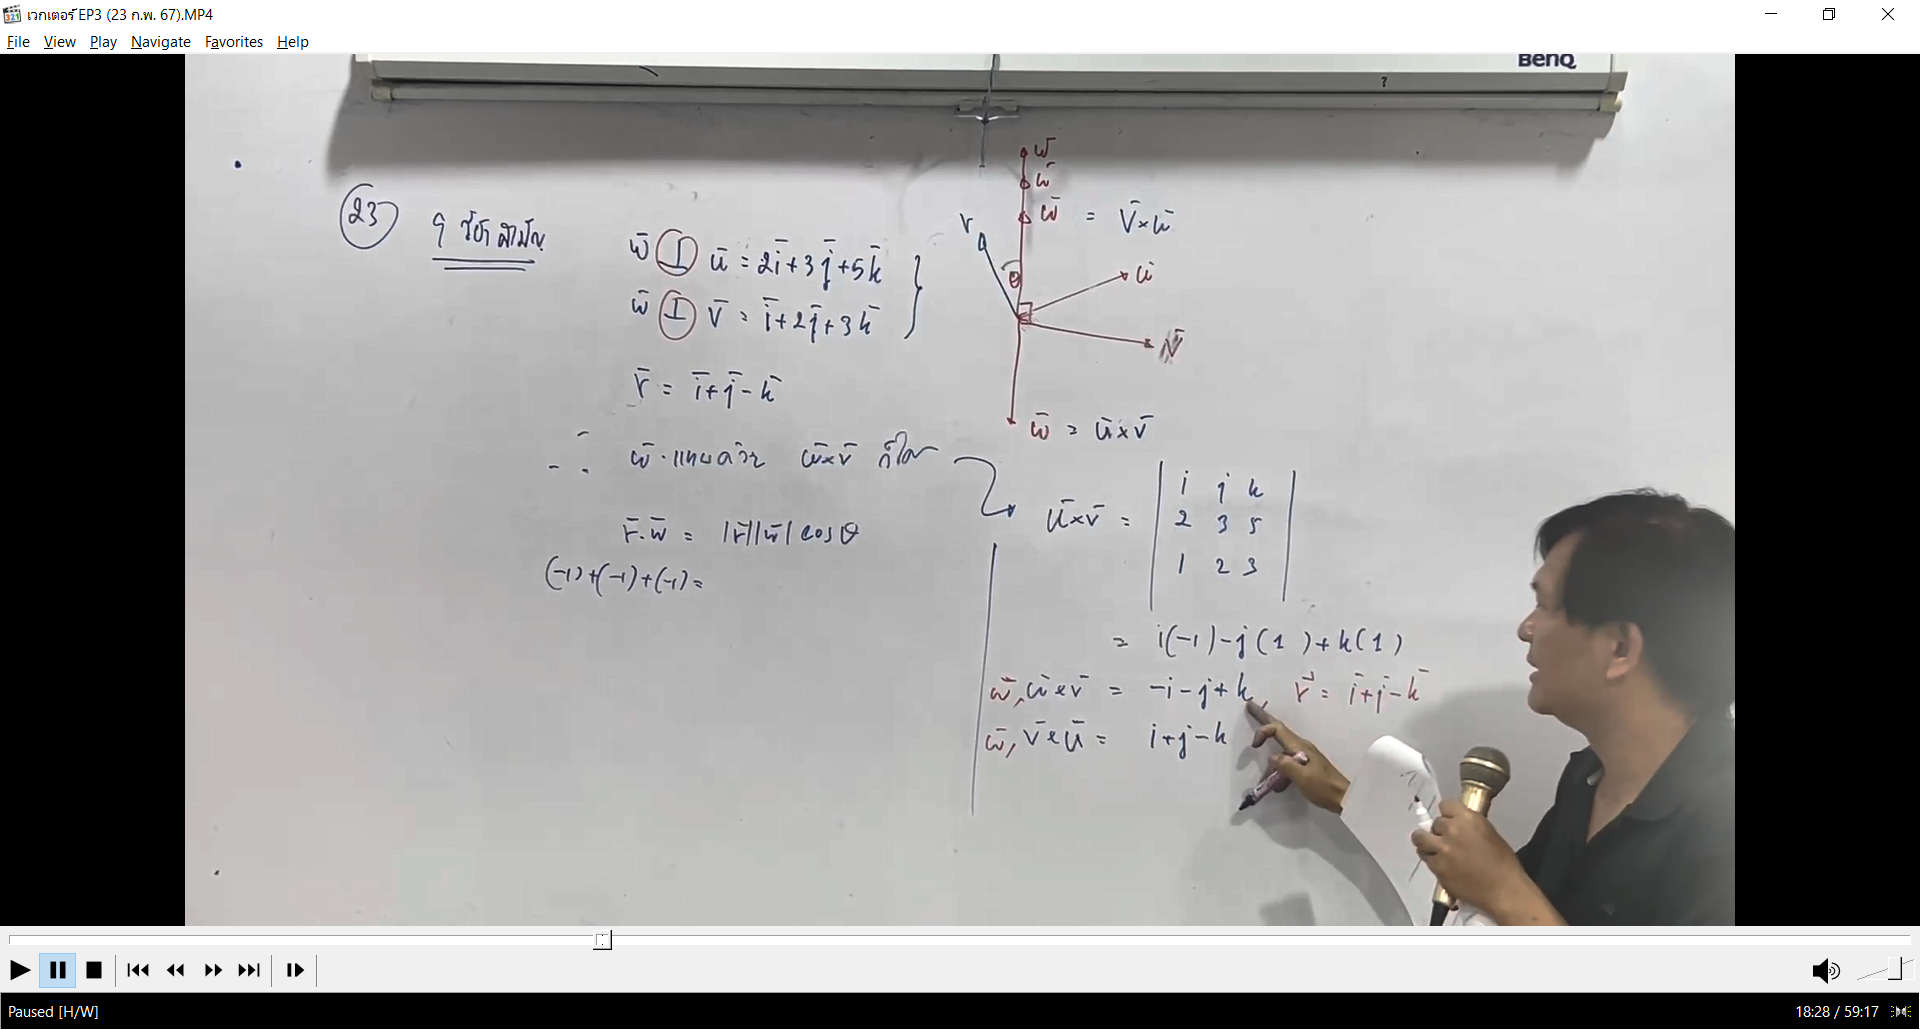 เวกเตอร์ EP3 (23 ก.พ. 67).MP4
File View Play Navigate Favorites Help
BenQ
23
9 วิชาสามัญ
w̄ ⊥ ū = 2ī+3j̄+5k̄
w̄ ⊥ v̄ = ī+2j̄+3k̄
r̄ = ī+j̄-k̄
∴ w̄ แทนด้วย ū×v̄ ก็ได้
r̄·w̄ = |r̄||w̄| cos θ
(-1)+(-1)+(-1) =
w̄
w̄
w̄ = v̄×ū
r
θ
ū
v̄
w̄ = ū×v̄
ū×v̄ =
i j k
2 3 5
1 2 3
= i(-1)-j(1)+k(1)
w̄, ū×v̄ = -i-j+k, r̄ = ī+j̄-k̄
w̄, v̄×ū = i+j-k
Paused [H/W]
18:28 / 59:17